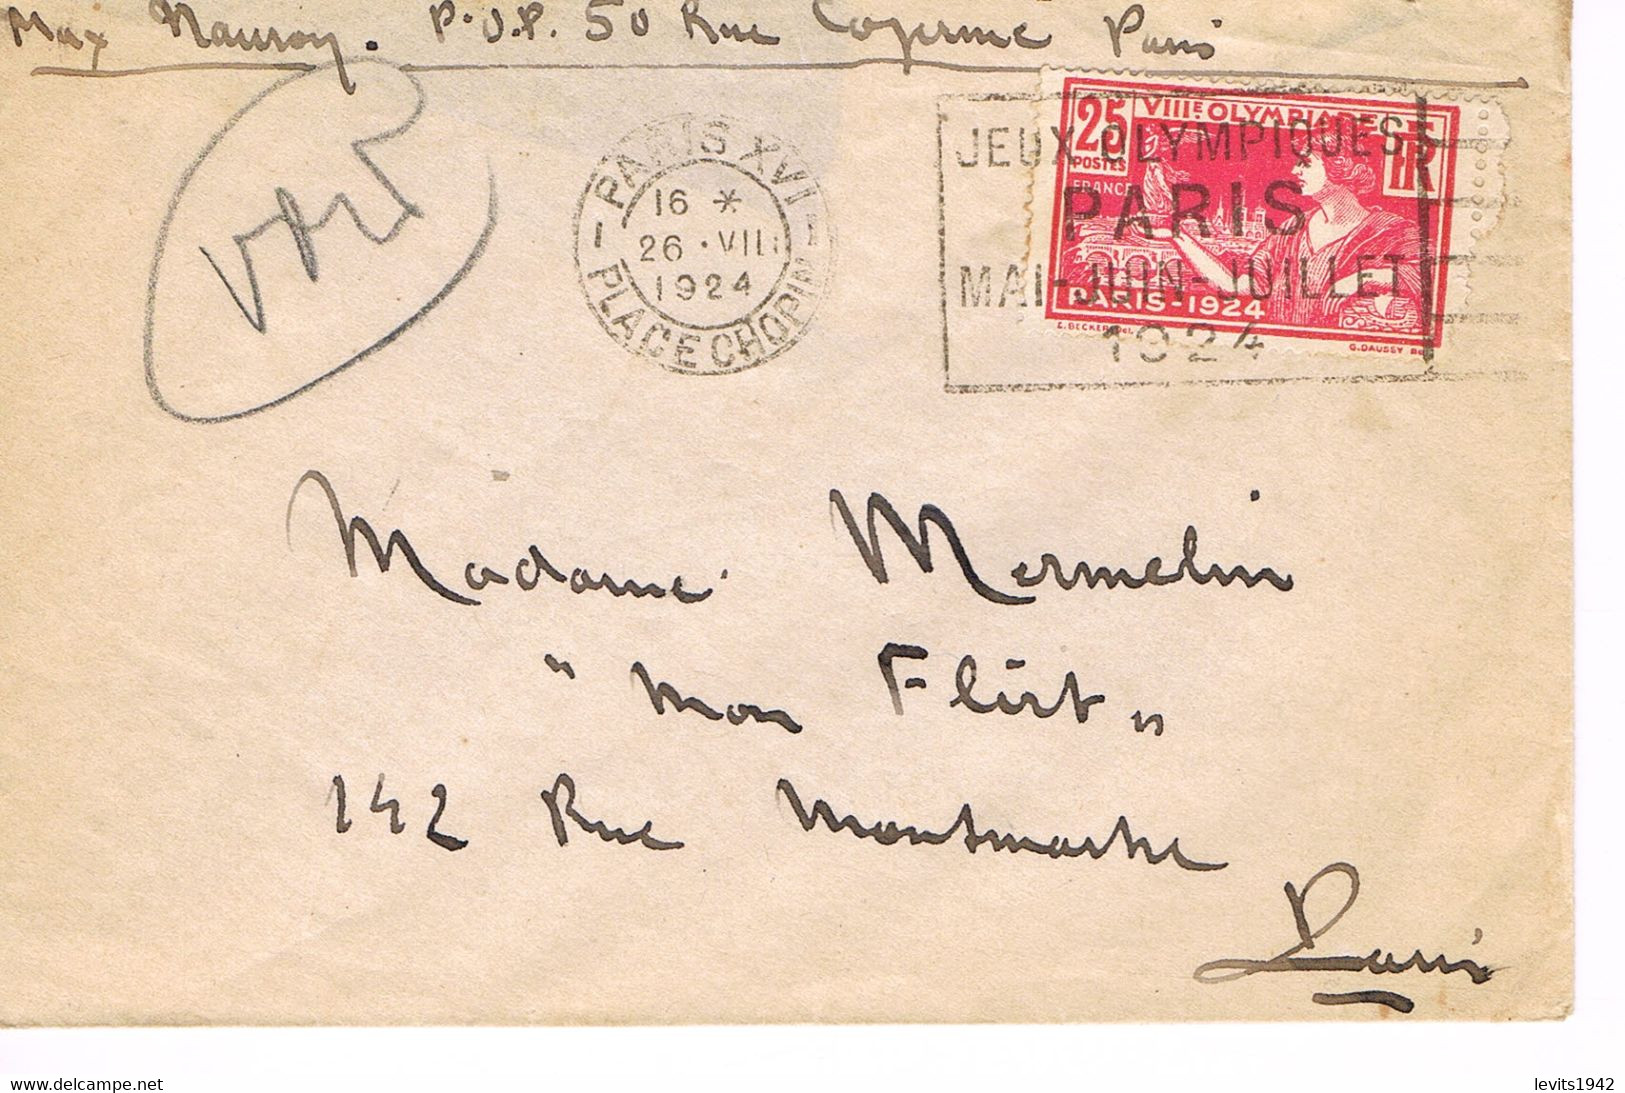 Max Nauroy. P.O.P. 50 Rue Copernic Paris
PARIS XVI
16 *
26 · VII
1924
PLACE CHOPIN
JEUX OLYMPIQUES
PARIS
MAI-JUIN-JUILLET
1924
VIIIE OLYMPIADE
25
POSTES
FRANCE
RF
PARIS-1924
E. BECKER Del.
G. DAUSSY
Madame Mermelin
"Mon Flirt"
142 Rue Montmartre
Paris
levits1942